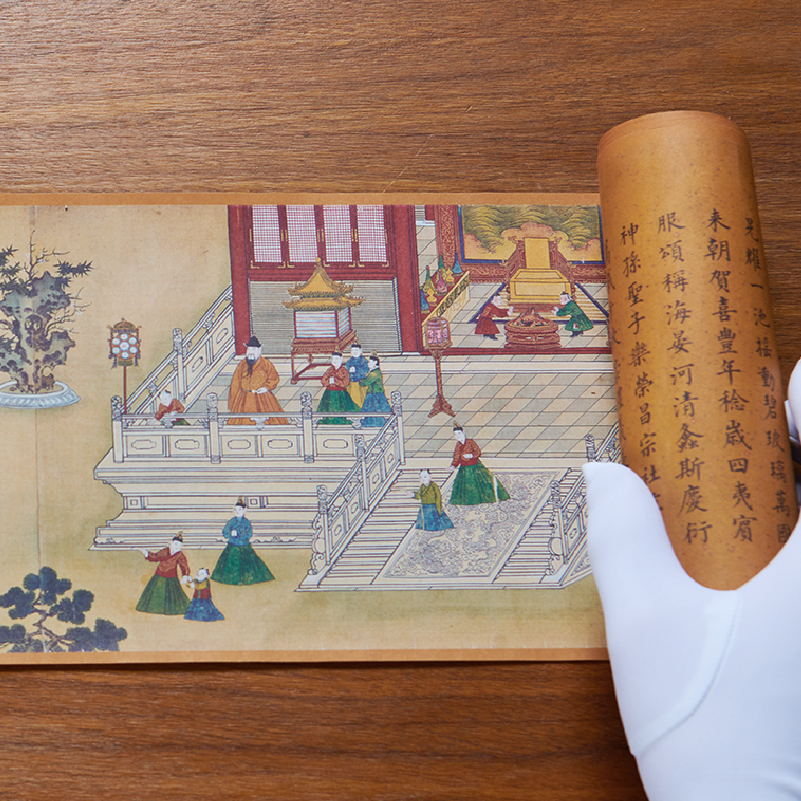 光耀一池搖動碧玻璃萬國
来朝賀喜豐年稔歲四夷賓
服頌稱海晏河清螽斯慶衍
神孫聖子樂榮昌宗社